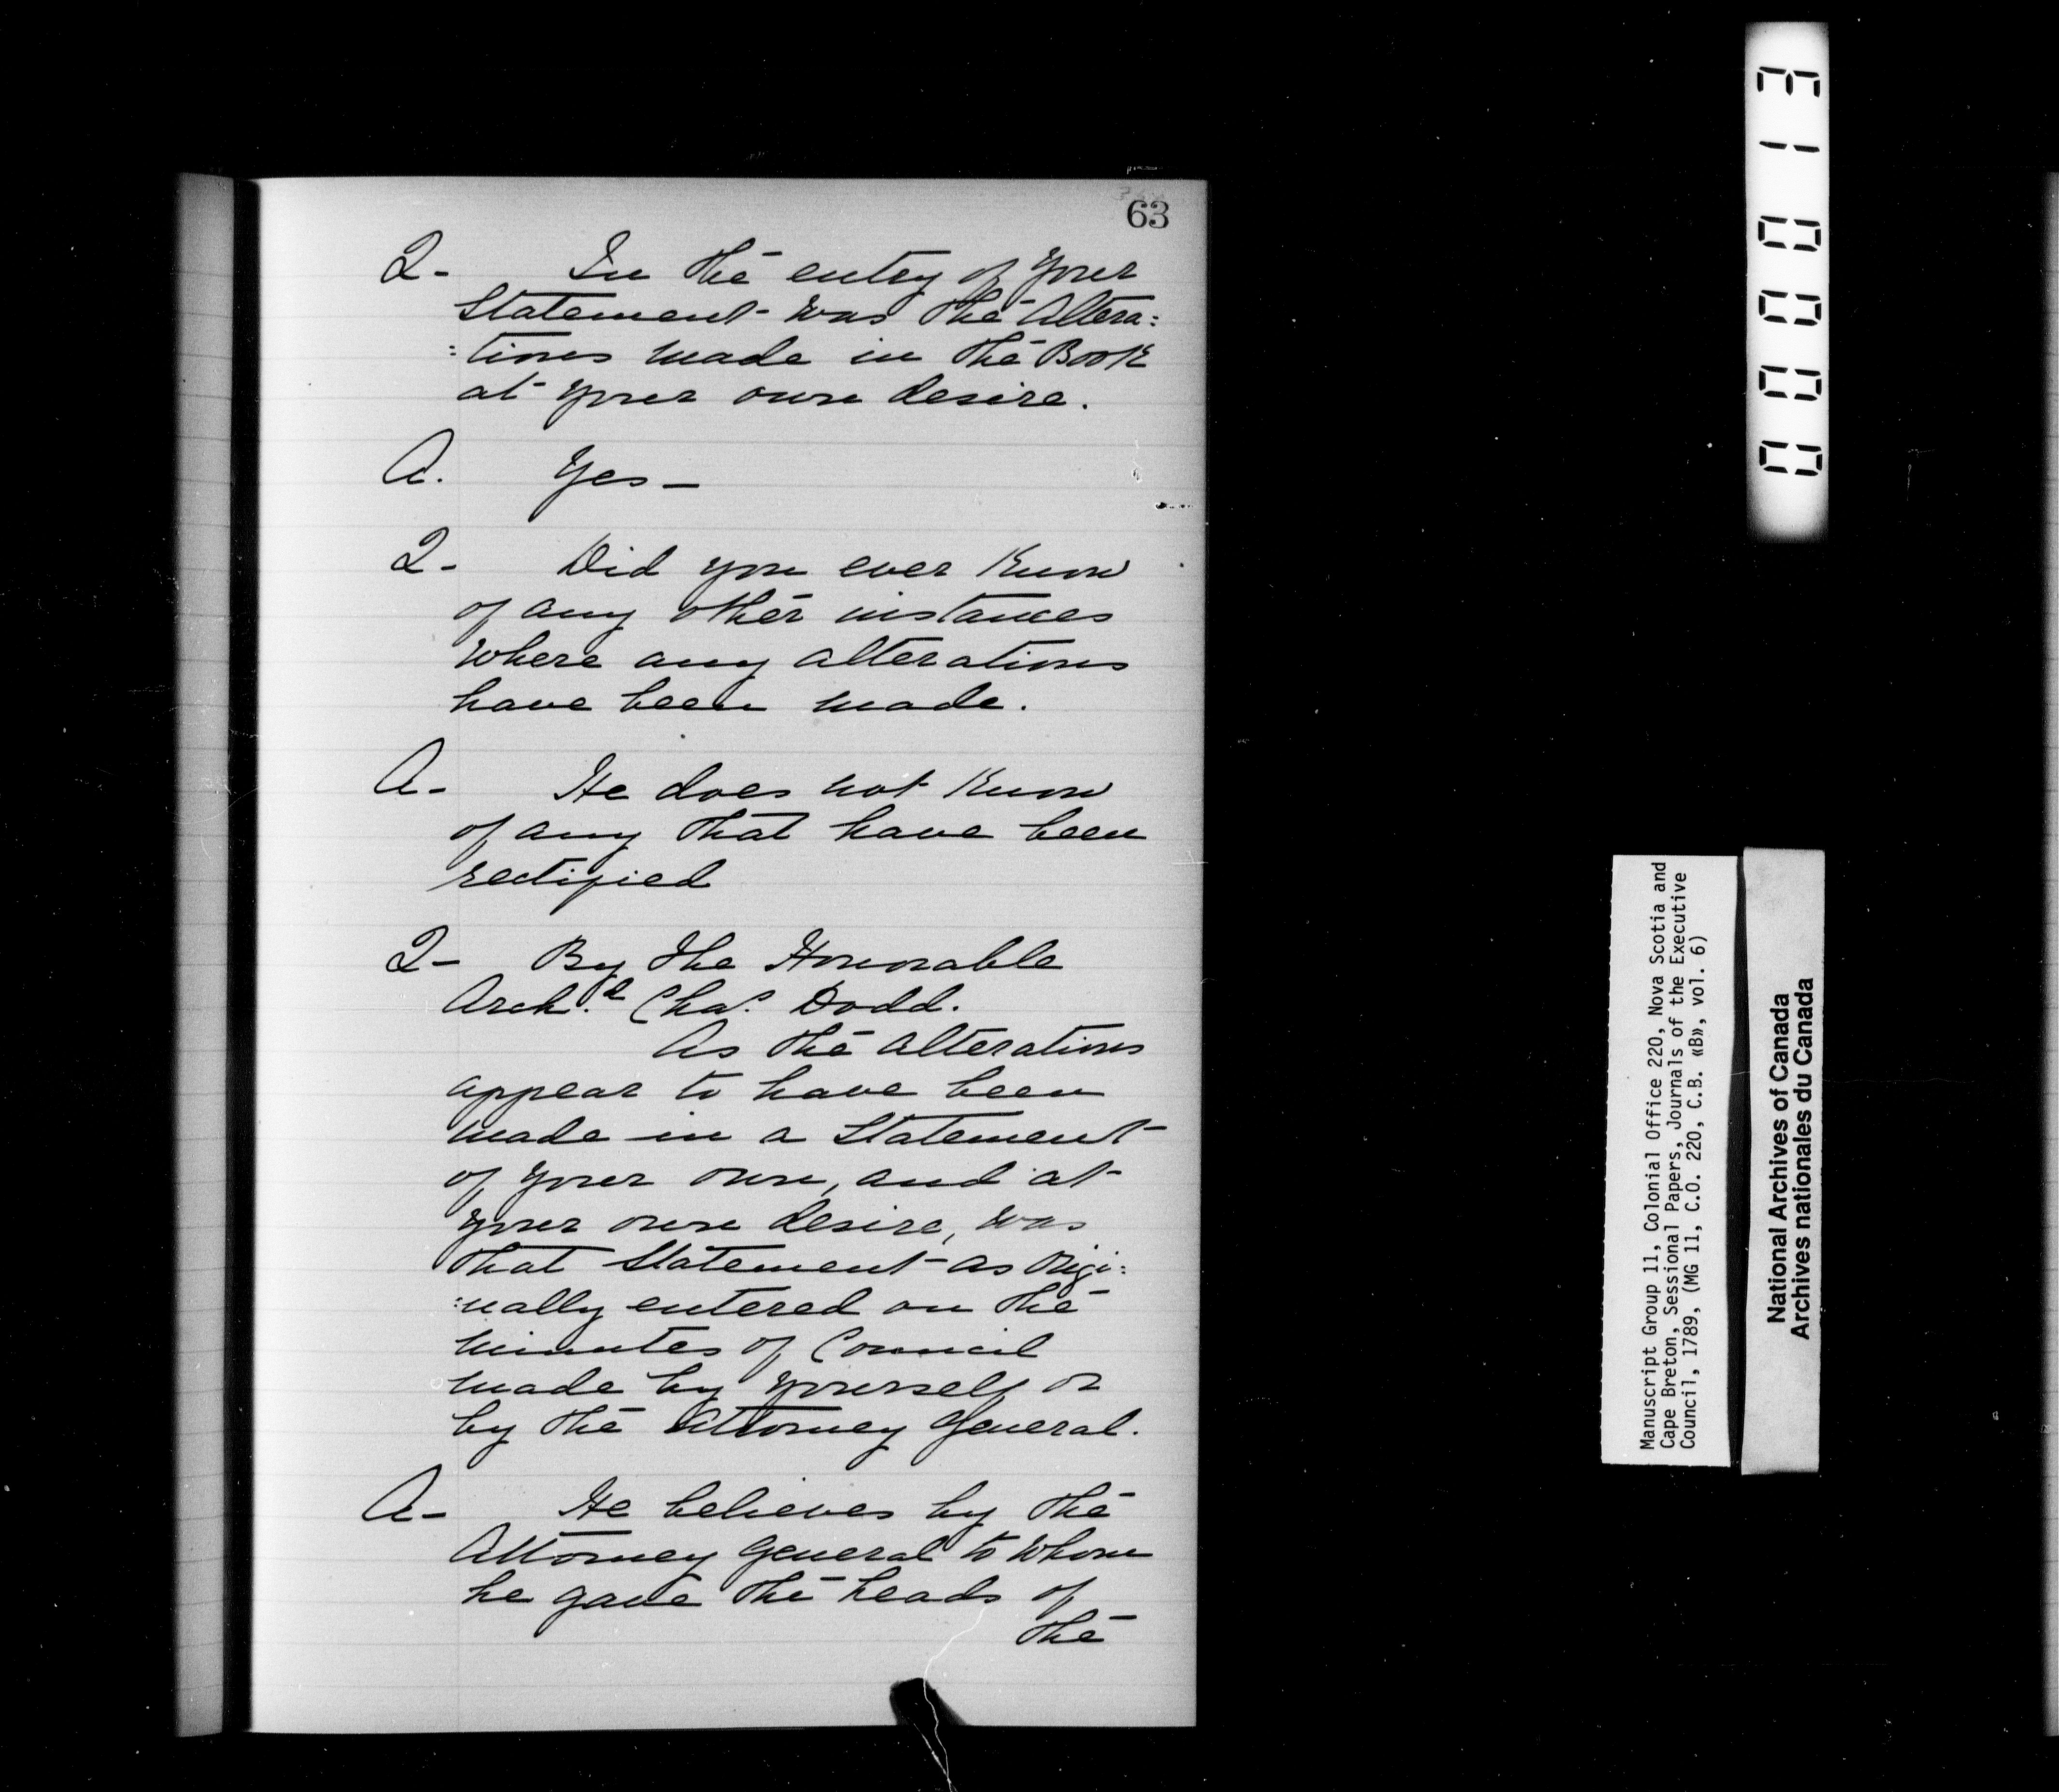 63
Q- In the entry of your
Statement was the Altera:
:tions made in the Book
at your own desire.
A. Yes-
Q- Did you ever know
of any other instances
where any alterations
have been made.
A- He does not know
of any that have been
rectified
Q- By the Honorable
Archd. Chas. Dodd.
As the alterations
appear to have been
made in a Statement
of your own, and at
your own desire, was
that Statement as Origi:
:nally entered on the
minutes of Council
made by yourself or
by the Attorney General.
A- He believes by the
Attorney General to whom
he gave the heads of
the
000013
Manuscript Group 11, Colonial Office 220, Nova Scotia and
Cape Breton, Sessional Papers, Journals of the Executive
Council, 1789, (MG 11, C.O. 220, C.B. «B», vol. 6)
National Archives of Canada
Archives nationales du Canada